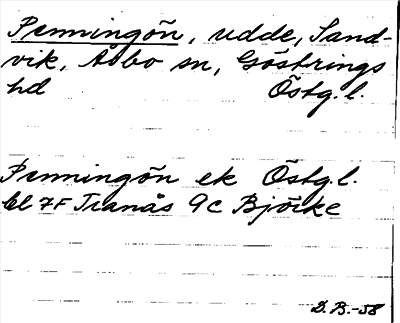 Penningön, udde, Sand-
vik, Åsbo sn, Göstrings
hd Östg.l.
Penningön ek Östg.l.
bl 7F Tranås 9c Bjöcke
D.B.-58